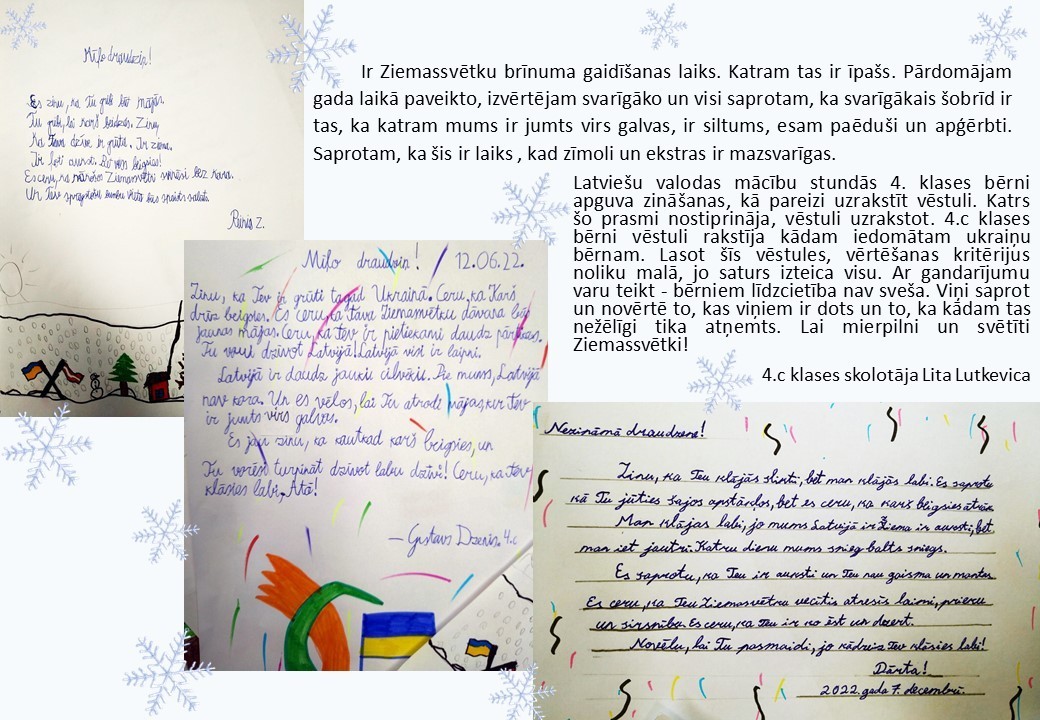 Ir Ziemassvētku brīnuma gaidīšanas laiks. Katram tas ir īpašs. Pārdomājam
gada laikā paveikto, izvērtējam svarīgāko un visi saprotam, ka svarīgākais šobrīd ir
tas, ka katram mums ir jumts virs galvas, ir siltums, esam paēduši un apģērbti.
Saprotam, ka šis ir laiks , kad zīmoli un ekstras ir mazsvarīgas.
Latviešu valodas mācību stundās 4. klases bērni
apguva zināšanas, kā pareizi uzrakstīt vēstuli. Katrs
šo prasmi nostiprināja, vēstuli uzrakstot. 4.c klases
bērni vēstuli rakstīja kādam iedomātam ukraiņu
bērnam. Lasot šīs vēstules, vērtēšanas kritērijus
noliku malā, jo saturs izteica visu. Ar gandarījumu
varu teikt - bērniem līdzcietība nav sveša. Viņi saprot
un novērtē to, kas viņiem ir dots un to, ka kādam tas
nežēlīgi tika atņemts. Lai mierpilni un svētīti
Ziemassvētki!
4.c klases skolotāja Lita Lutkevica
Mīļo draudziņ!
Es zinu, ka Tu gribi būt mājās.
Tu gribi, lai karš beidzas. Zinu,
Ka Tava dzīve ir grūta. Ir ziema.
Ir ļoti auksti. Bet viss beigsies!
Es ceru, ka nākošos Ziemassvētki bez kara.
Un Tev
Reinis Z.
Mīļo draudziņ! 12.06.22.
Zinu, ka Tev ir grūti tagad Ukrainā. Ceru, ka Karš
drīz beigsies. Es Ceru, ka tava Ziemassvētku dāvana būs
jaunas mājas. Ceru, ka tev ir pietiekami daudz pārtikas.
Tu vari dzīvot Latvijā! Latvijā visi ir laipni.
Latvijā ir daudz jauki cilvēki. Pie mums, Latvijā
nav kara. Un es vēlos, lai Tu atrodi mājas, kur Tev
ir jumts virs galvas.
Es jau zinu, ka kautkad karš beigsies, un
Tu varēsi turpināt dzīvot labu dzīvi! Ceru, ka tev
klāsies labi. Atā!
— Gustavs Dzenis. 4.c
Nezināmā draudzene!
Zinu, ka Tev klājās slikti, bet man klājās labi. Es saprotu
kā Tu jūties šajos apstākļos, bet es ceru, ka karš beigsies ātrāk.
Man klājas labi, jo mums Latvijā ir Ziema ir auksti, bet
man iet jautri. Katru dienu mums snieg balts sniegs.
Es saprotu, ka Tev ir auksti un Tev nav gaisma un mantas.
Es ceru, ka Tev Ziemasvētku vecītis atnesīs laimi, prieku
un sirsnību. Es ceru, ka Tev ir ko ēst un dzert.
Novēlu, lai Tu pasmaidi, jo kādreiz Tev klāsies labi!
Dārta!
2022. gada 7. decembrī.